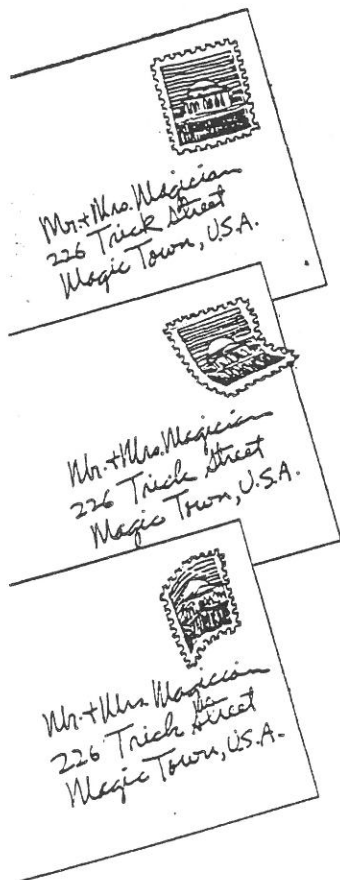 Mr. + Mrs. Magician
226 Trick Street
Magic Town, U.S.A.
Mr. + Mrs. Magician
226 Trick Street
Magic Town, U.S.A.
Mr. + Mrs. Magician
226 Trick Street
Magic Town, U.S.A.